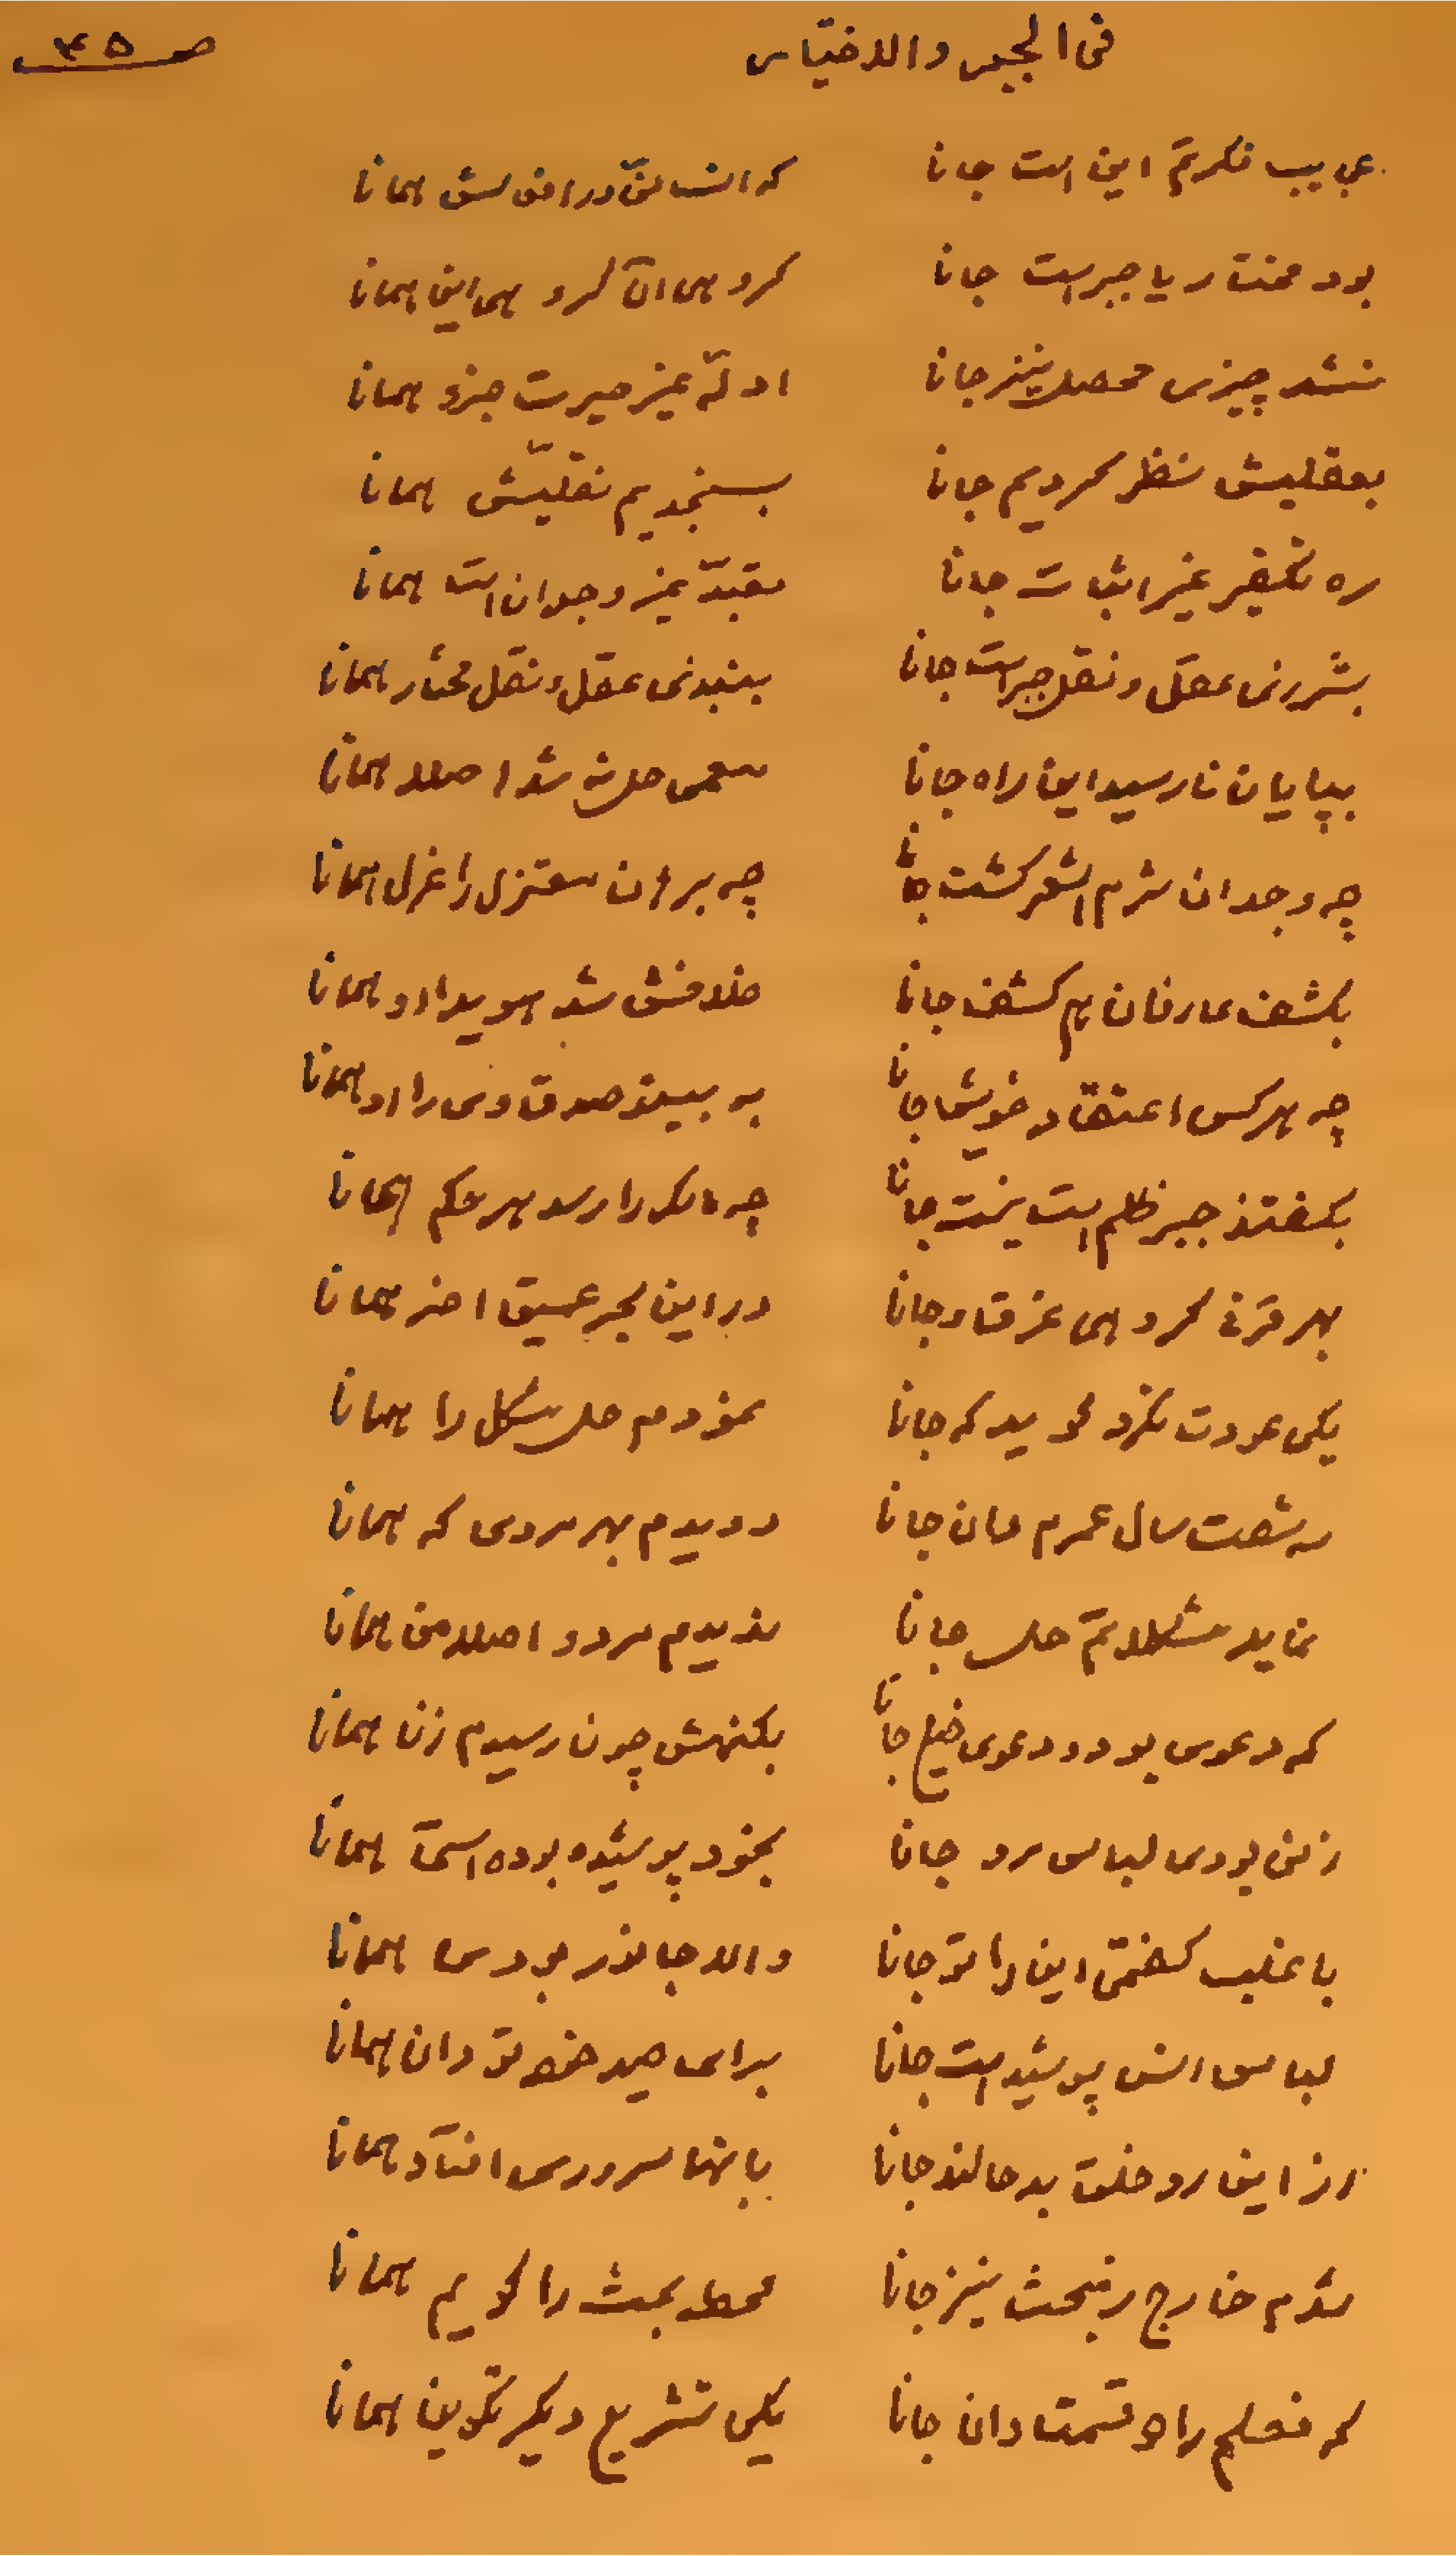 ص ۴۵
فی الجبر والاختیار
عجایب فکرتم این است جانا
که انسانی در افعالش همانا
بود مختار یا جبر است جانا
گروهی آن گروهی این همانا
نشد چیزی محصل نیز جانا
ادله غیر حیرت جزء همانا
بعقلیش نظر کردیم جانا
بسنجدیم نقلیش همانا
ره تکفیر غیر اثبات جانا
وجدان است همانا
بشرزی عقل و نقل جبر است جانا
ببندی عقل و نقل مختار همانا
بپایان نارسید این راه جانا
معمی حل نشد اصلا همانا
چه وجدان شرم اشعر گشت جانا
چه برهان معتزل را عزل همانا
بکشف عارفان هم کشف جانا
خلافش شد هویدا او همانا
چه هر کس اعتقاد خویش جانا
به بیند صدق او را او همانا
بگفتند جبر ظلم است نیست جانا
چه مالک را رسد هر حکم همانا
بهر قرنی گروهی غرق او جانا
در این بحر عمیق اخر همانا
یکی عودت نکرد گوید که جانا
نمودم حل مشکل را همانا
به شصت سال عمرم هان جانا
دویدم بهر مردی که همانا
نماید مشکلاتم حل جانا
ندیدم مرد و اصلا من همانا
که دعوی بود و دعوی خیلی جانا
بکنهش چون رسیدم زن همانا
زنی بودی لباس مرد جانا
بخود پوشیده بوده است همانا
با غلب گفتی این را تو جانا
والا جانور بودی همانا
لباس انس پوشید است جانا
برای صید خود تو دان همانا
از این رو خلق بد حالند جانا
باینها سروری افتاد همانا
شدم خارج ز بحث نیز جانا
محط بحث را گویم همانا
که فعلم را دو قسمت دان جانا
یکی تشریع دیگر تکوین همانا